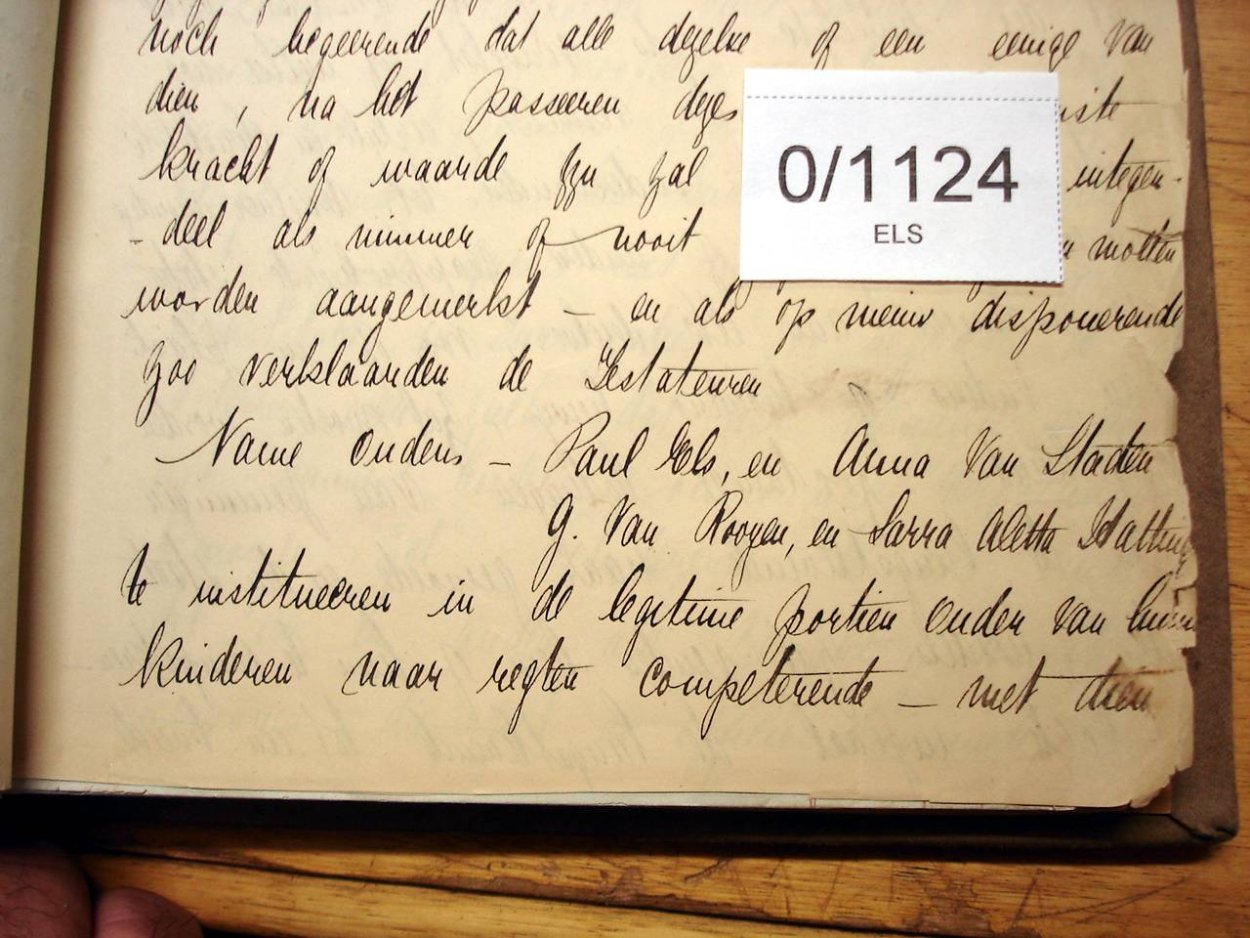 noch begeerende dat alle dezelve of een eenige van
dien, na het passeeren dezes
kracht of waarde zyn zal integen-
-deel als nimmer of nooit motten
worden aangemerkt – en als op nieuw disponerende
zoo verklaarden de Testateuren
Name ouders – Paul Els, en Anna Van Staden
G. Van Rooyen, en Sarra Aletta
te institueeren in de legitime portien onder van
kinderen naar regten competerende – met dien
0/1124
ELS